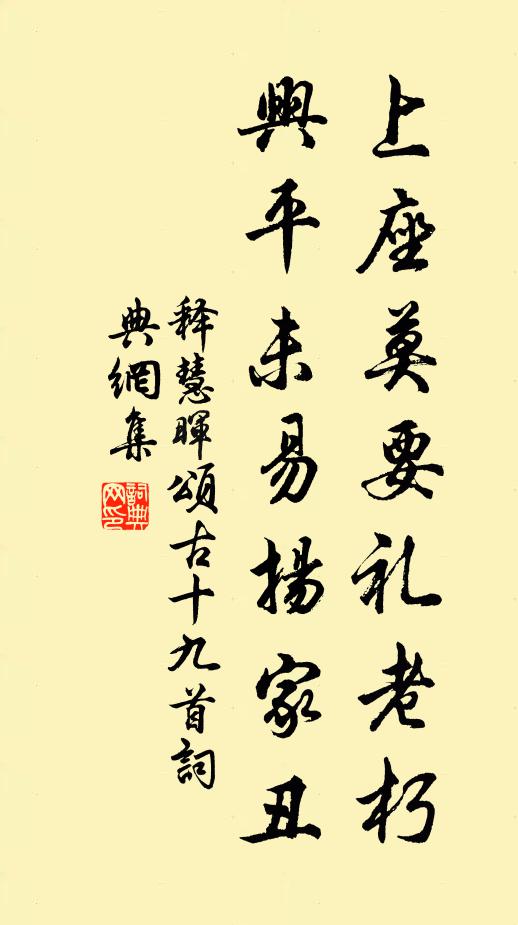 上座莫要礼老朽
興平未易揚家丑
释慧暉頌古十九首詞
典網集
詞典網印